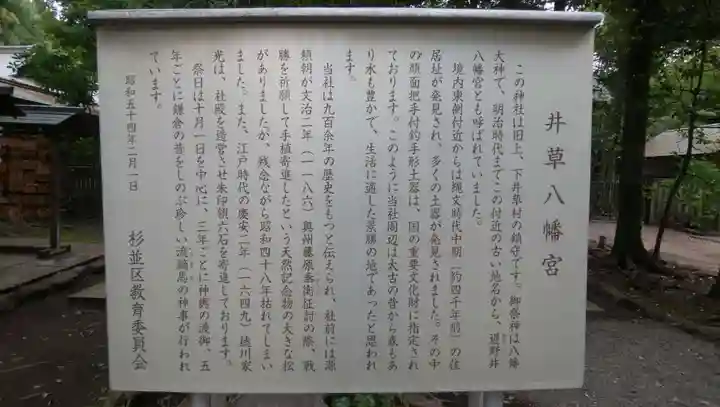 井草八幡宮
この神社は旧上、下井草村の鎮守です。御祭神は八幡
大神で、明治時代までこの付近の古い地名から、遅野井
八幡宮とも呼ばれていました。
境内東側付近からは縄文時代中期（約四千年前）の住
居址が発見され、多くの土器が発見されました。その中
の顔面把手付釣手形土器は、国の重要文化財に指定され
ております。このように当社周辺は太古の昔から直もあ
り水も豊かで、生活に適した景勝の地であったと思われ
ます。
当社は九百余年の歴史をもつと伝えられ、社前には源
頼朝が文治二年（一一八六）奥州藤原泰衡征討の際、戦
勝を祈願して手植寄進したという天然記念物の大きな松
がありましたが、残念ながら昭和四十八年枯れてしまい
ました。また、江戸時代の慶安二年（一六四九）徳川家
光は、社殿を造営させ朱印領六石を寄進しております。
祭日は十月一日を中心に、三年ごとに神輿の渡御、五
年ごとに鎌倉の昔をしのぶ珍しい流鏑馬の神事が行われ
ています。
昭和五十四年二月一日
杉並区教育委員会